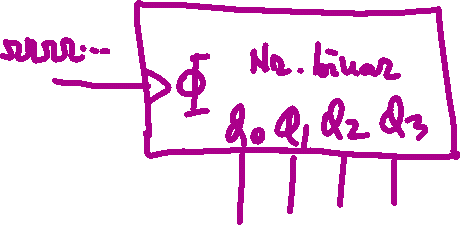 Φ Nr. binar
Q0 Q1 Q2 Q3